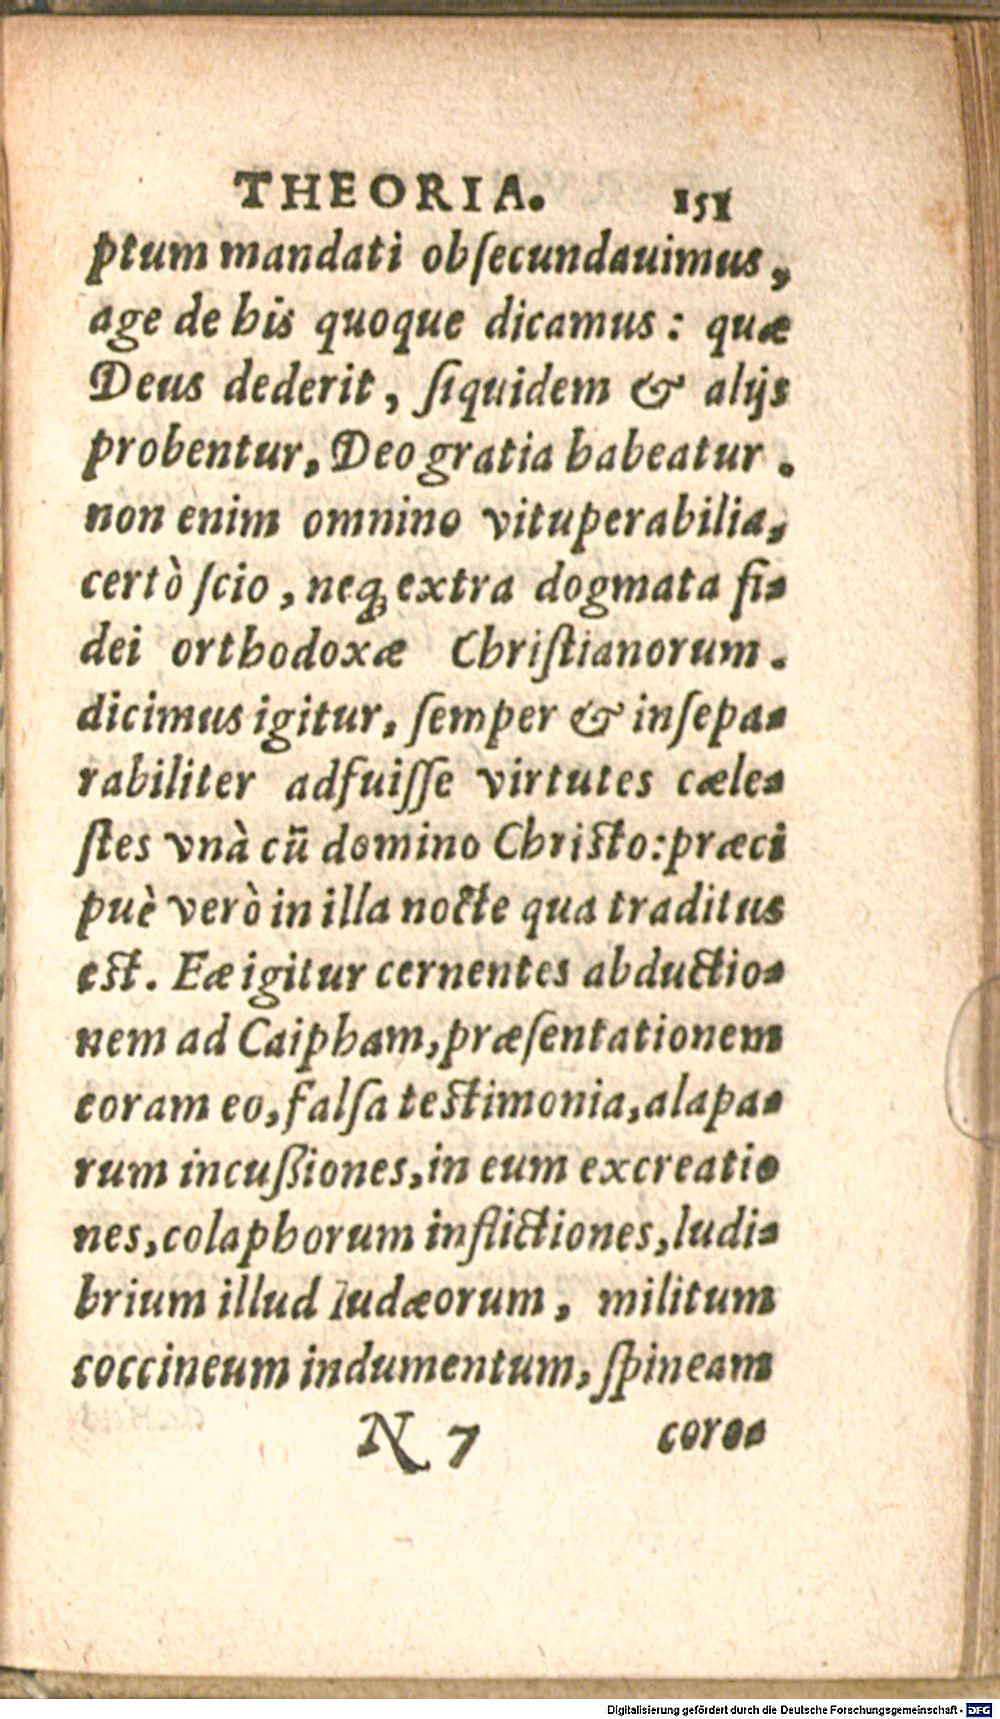 THEORIA. 151
ptum mandati obſecundauimus,
age de his quoque dicamus: quæ
Deus dederit, ſiquidem & alijs
probentur, Deo gratia habeatur.
non enim omnino vituperabilia,
certò ſcio, neq́; extra dogmata fi-
dei orthodoxæ Chriſtianorum.
dicimus igitur, ſemper & inſepa-
rabiliter adfuiſſe virtutes cæle-
ſtes vnà cū domino Chriſto: præci
puè verò in illa nocte qua traditus
eſt. Eæ igitur cernentes abductio-
nem ad Caipham, præſentationem
coram eo, falſa teſtimonia, alapa-
rum incuſsiones, in eum excreatio
nes, colaphorum inflictiones, ludi-
brium illud Iudæorum, militum
coccineum indumentum, ſpineam
N 7 coro-
Digitalisierung gefördert durch die Deutsche Forschungsgemeinschaft - DFG